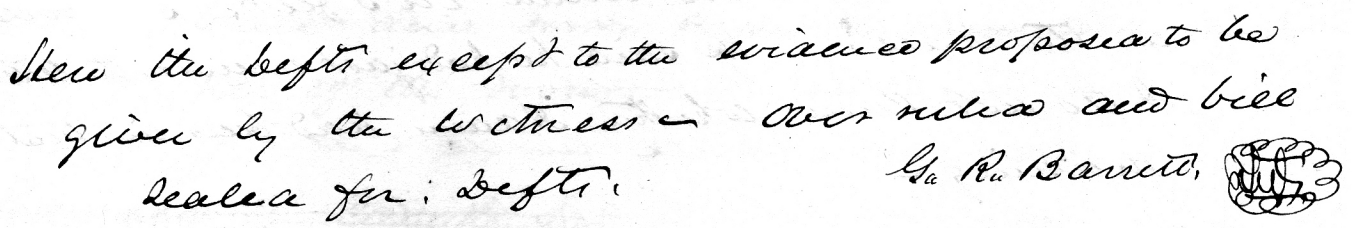 Here the Defts except to the evidence proposed to be
given by the witness – Over ruled and bill
sealed for: Defts.
G. R. Barrett,